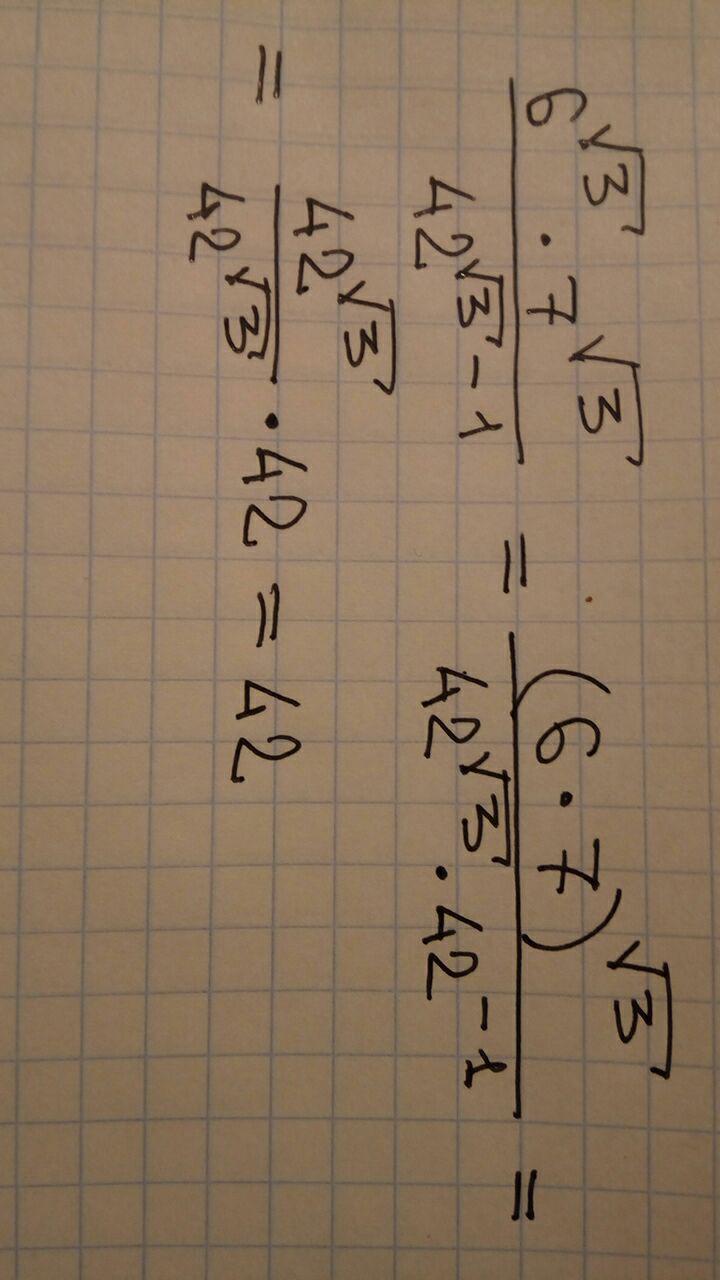 6^√3 · 7^√3 / 42^(√3 - 1) = (6 · 7)^√3 / (42^√3 · 42^-1) =
= 42^√3 / 42^√3 · 42 = 42